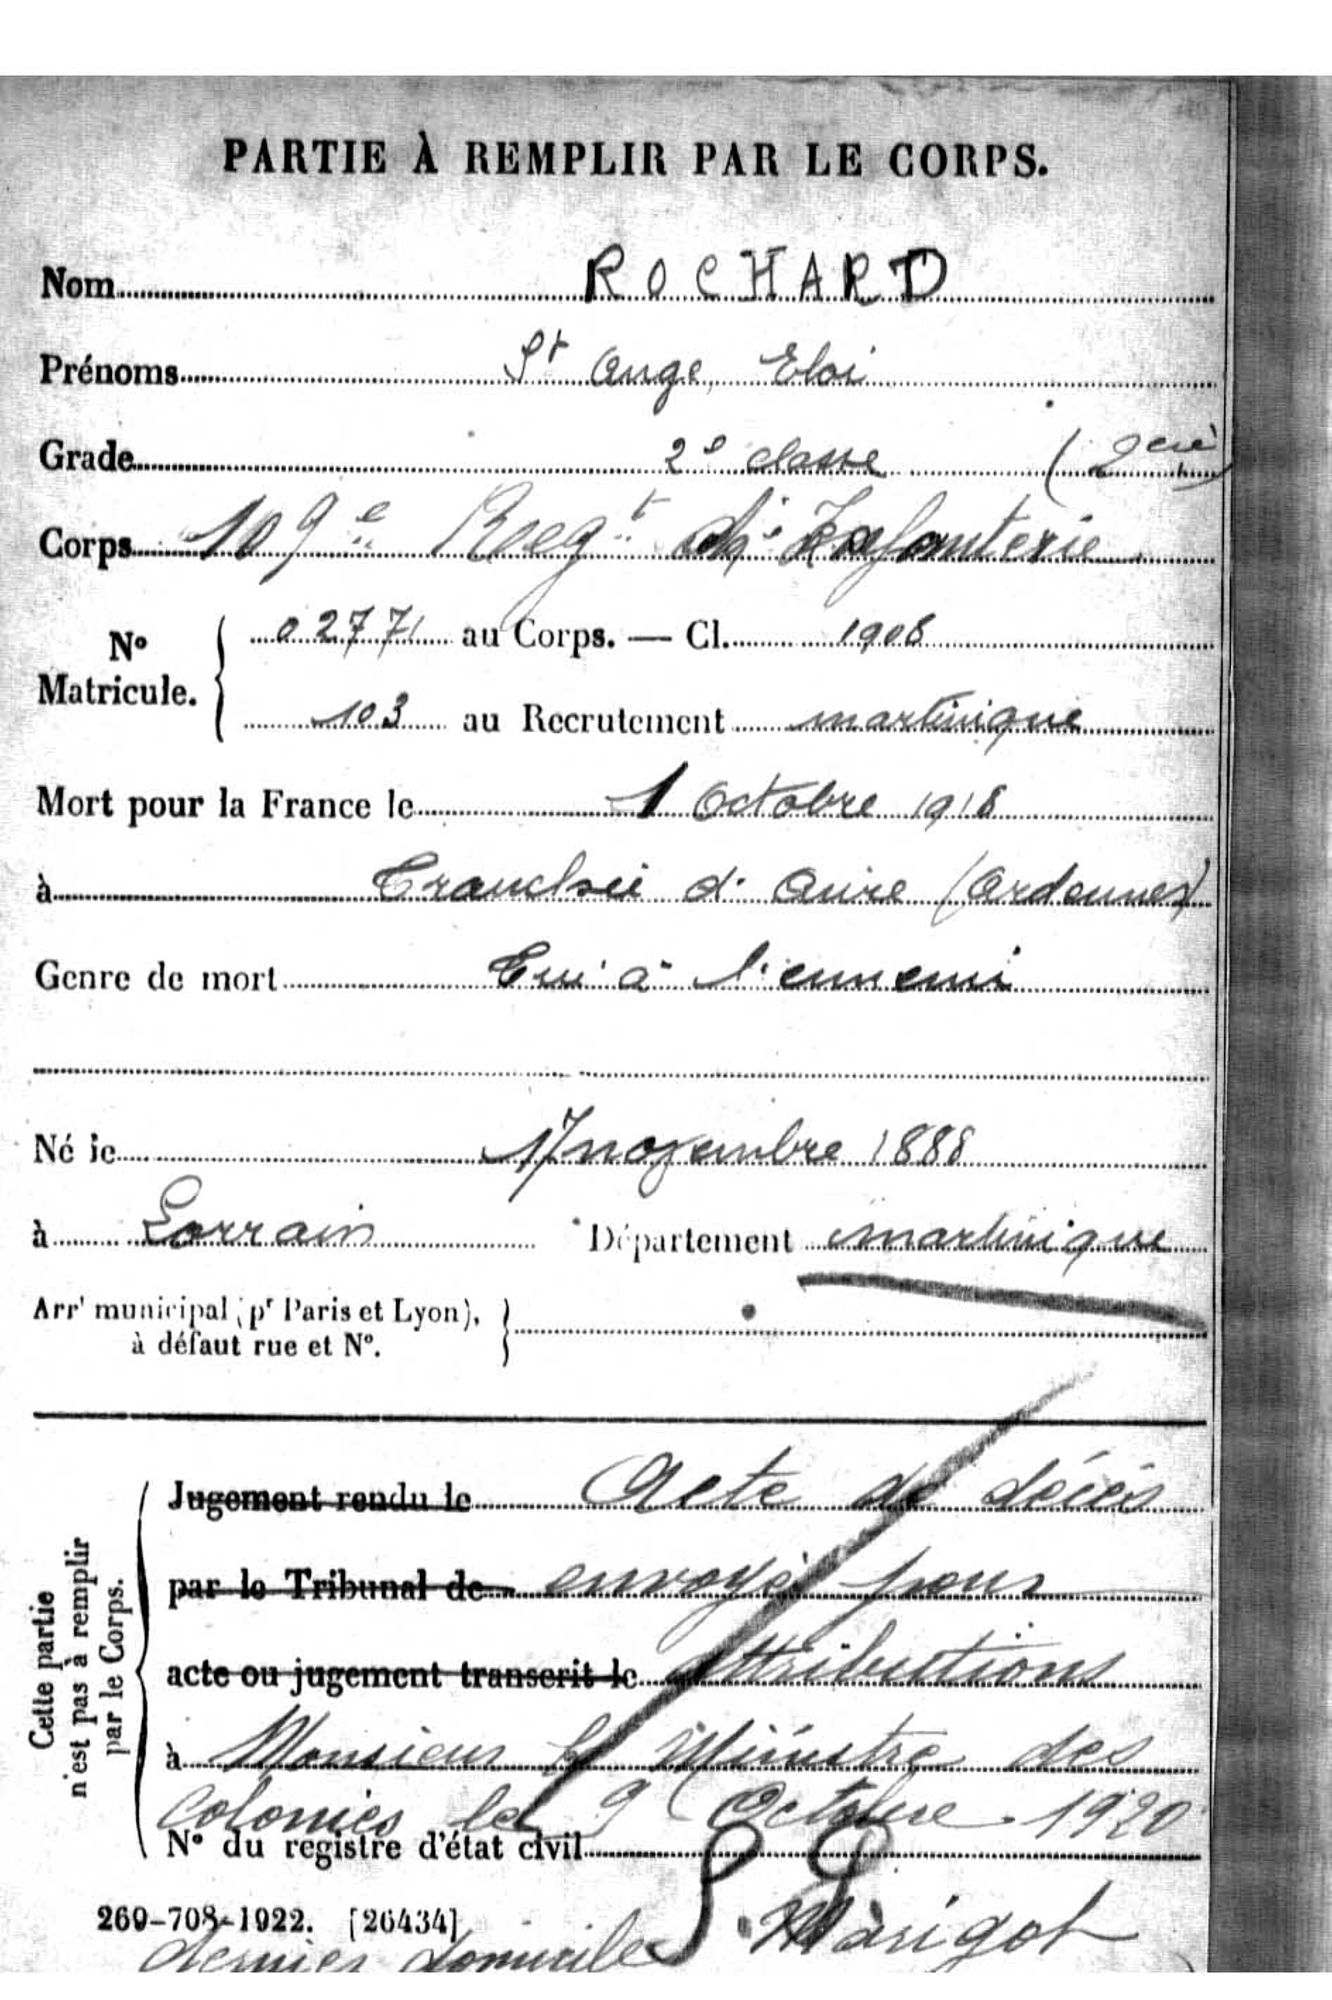 PARTIE À REMPLIR PAR LE CORPS.
Nom ROCHARD
Prénoms St Ange, Eloi
Grade 2e classe
Corps 109e Regt d'Infanterie
No Matricule. 02771 au Corps. — Cl. 1908
103 au Recrutement martinique
Mort pour la France le 1 Octobre 1918
à Tranchée d' Aure (Ardennes)
Genre de mort Tué à l'ennemi
Né le 17 novembre 1888
à Lorrain Département martinique
Arrt municipal (pr Paris et Lyon),
à défaut rue et No.
Cette partie
n'est pas à remplir
par le Corps.
Jugement rendu le Acte de décès
par le Tribunal de envoyé pour
acte ou jugement transcrit le attributions
à Monsieur le Ministre des
Colonies le 9 Octobre 1920
No du registre d'état civil
269-708-1922. [26434]
dernier domicile Marigot